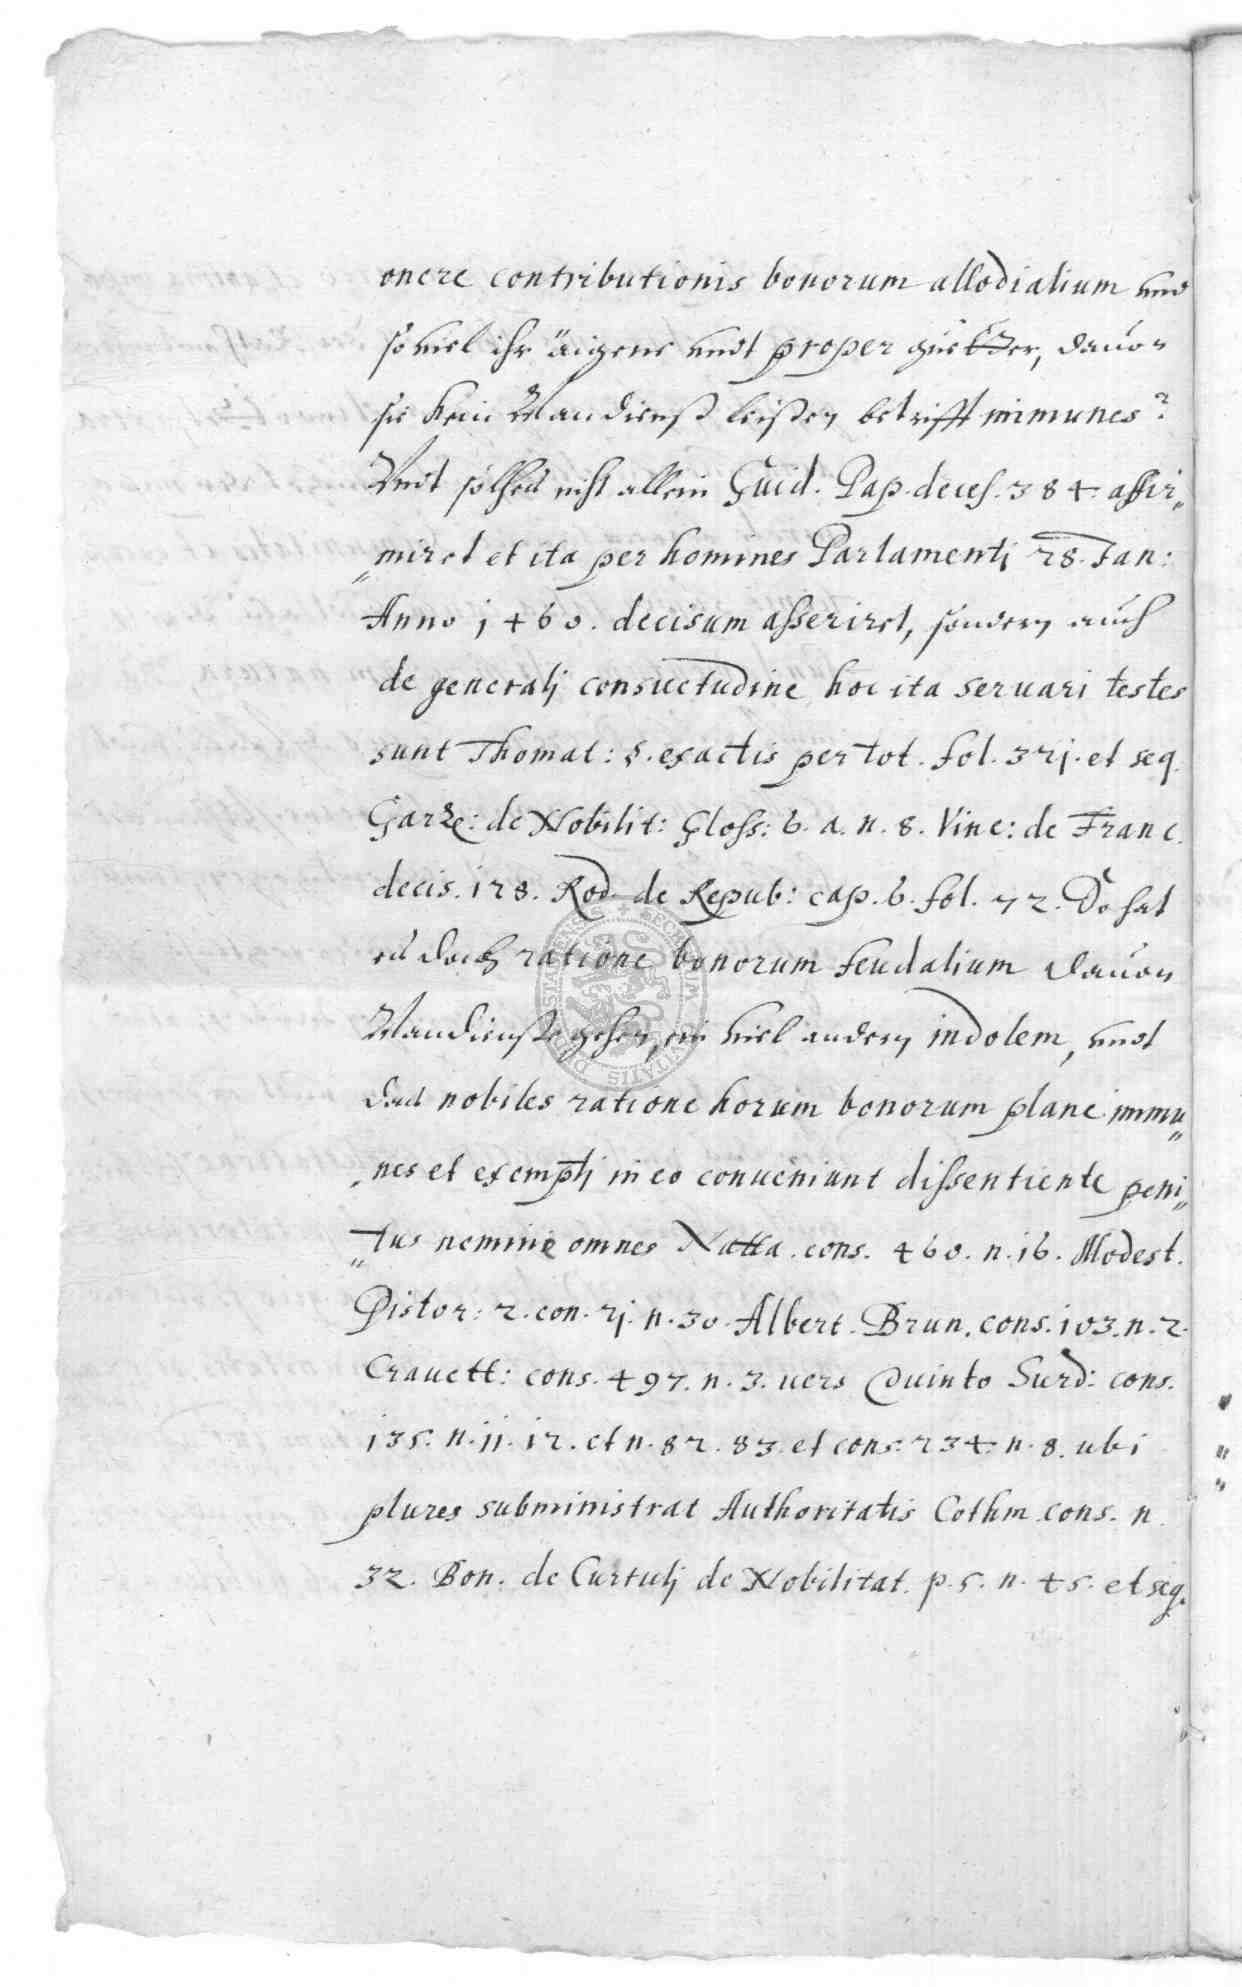 onere contributionis bonorum allodialium und
so viel ihr äigene undt proper güetter, davon
sie kein Mandienst leisten betrifft immunes?
Undt solches nicht allein Guid. Pap. deces. 384. affir„
„miret et ita per homines Parlamentj 28. Jan:
Anno 1460. decisum asseriret, sondern auch
de generalj consuetudine hoc ita servari testes
sunt Thomat: §. exactis per tot. fol. 321. et seq.
Garze: de Nobilit: Gloss: 6. a. n. 8. Vinc: de Franc.
decis. 128. Rod. de Repub: cap. 6. fol. 72. So hat
es doch ratione bonorum feudalium davon
Mandienste gehen, ein viel andern indolem, undt
das nobiles ratione horum bonorum plane immu„
„nes et exemptj in eo conveniunt dissentiente peni„
„tus nemine omnes Natta. cons. 460. n. 16. Modest.
Pistor: 2. con. 21. n. 30. Albert. Brun. cons. 103. n. 2.
Cravett: cons. 497. n. 3. vers Quinto Surd: cons.
135. n. 11. 12. et n. 82. 83. et cons. 234. n. 8. ubi
plures subministrat Authoritatis Cothm. cons. n.
32. Bon. de Curtulj de Nobilitat. p. 5. n. 45. et seq.